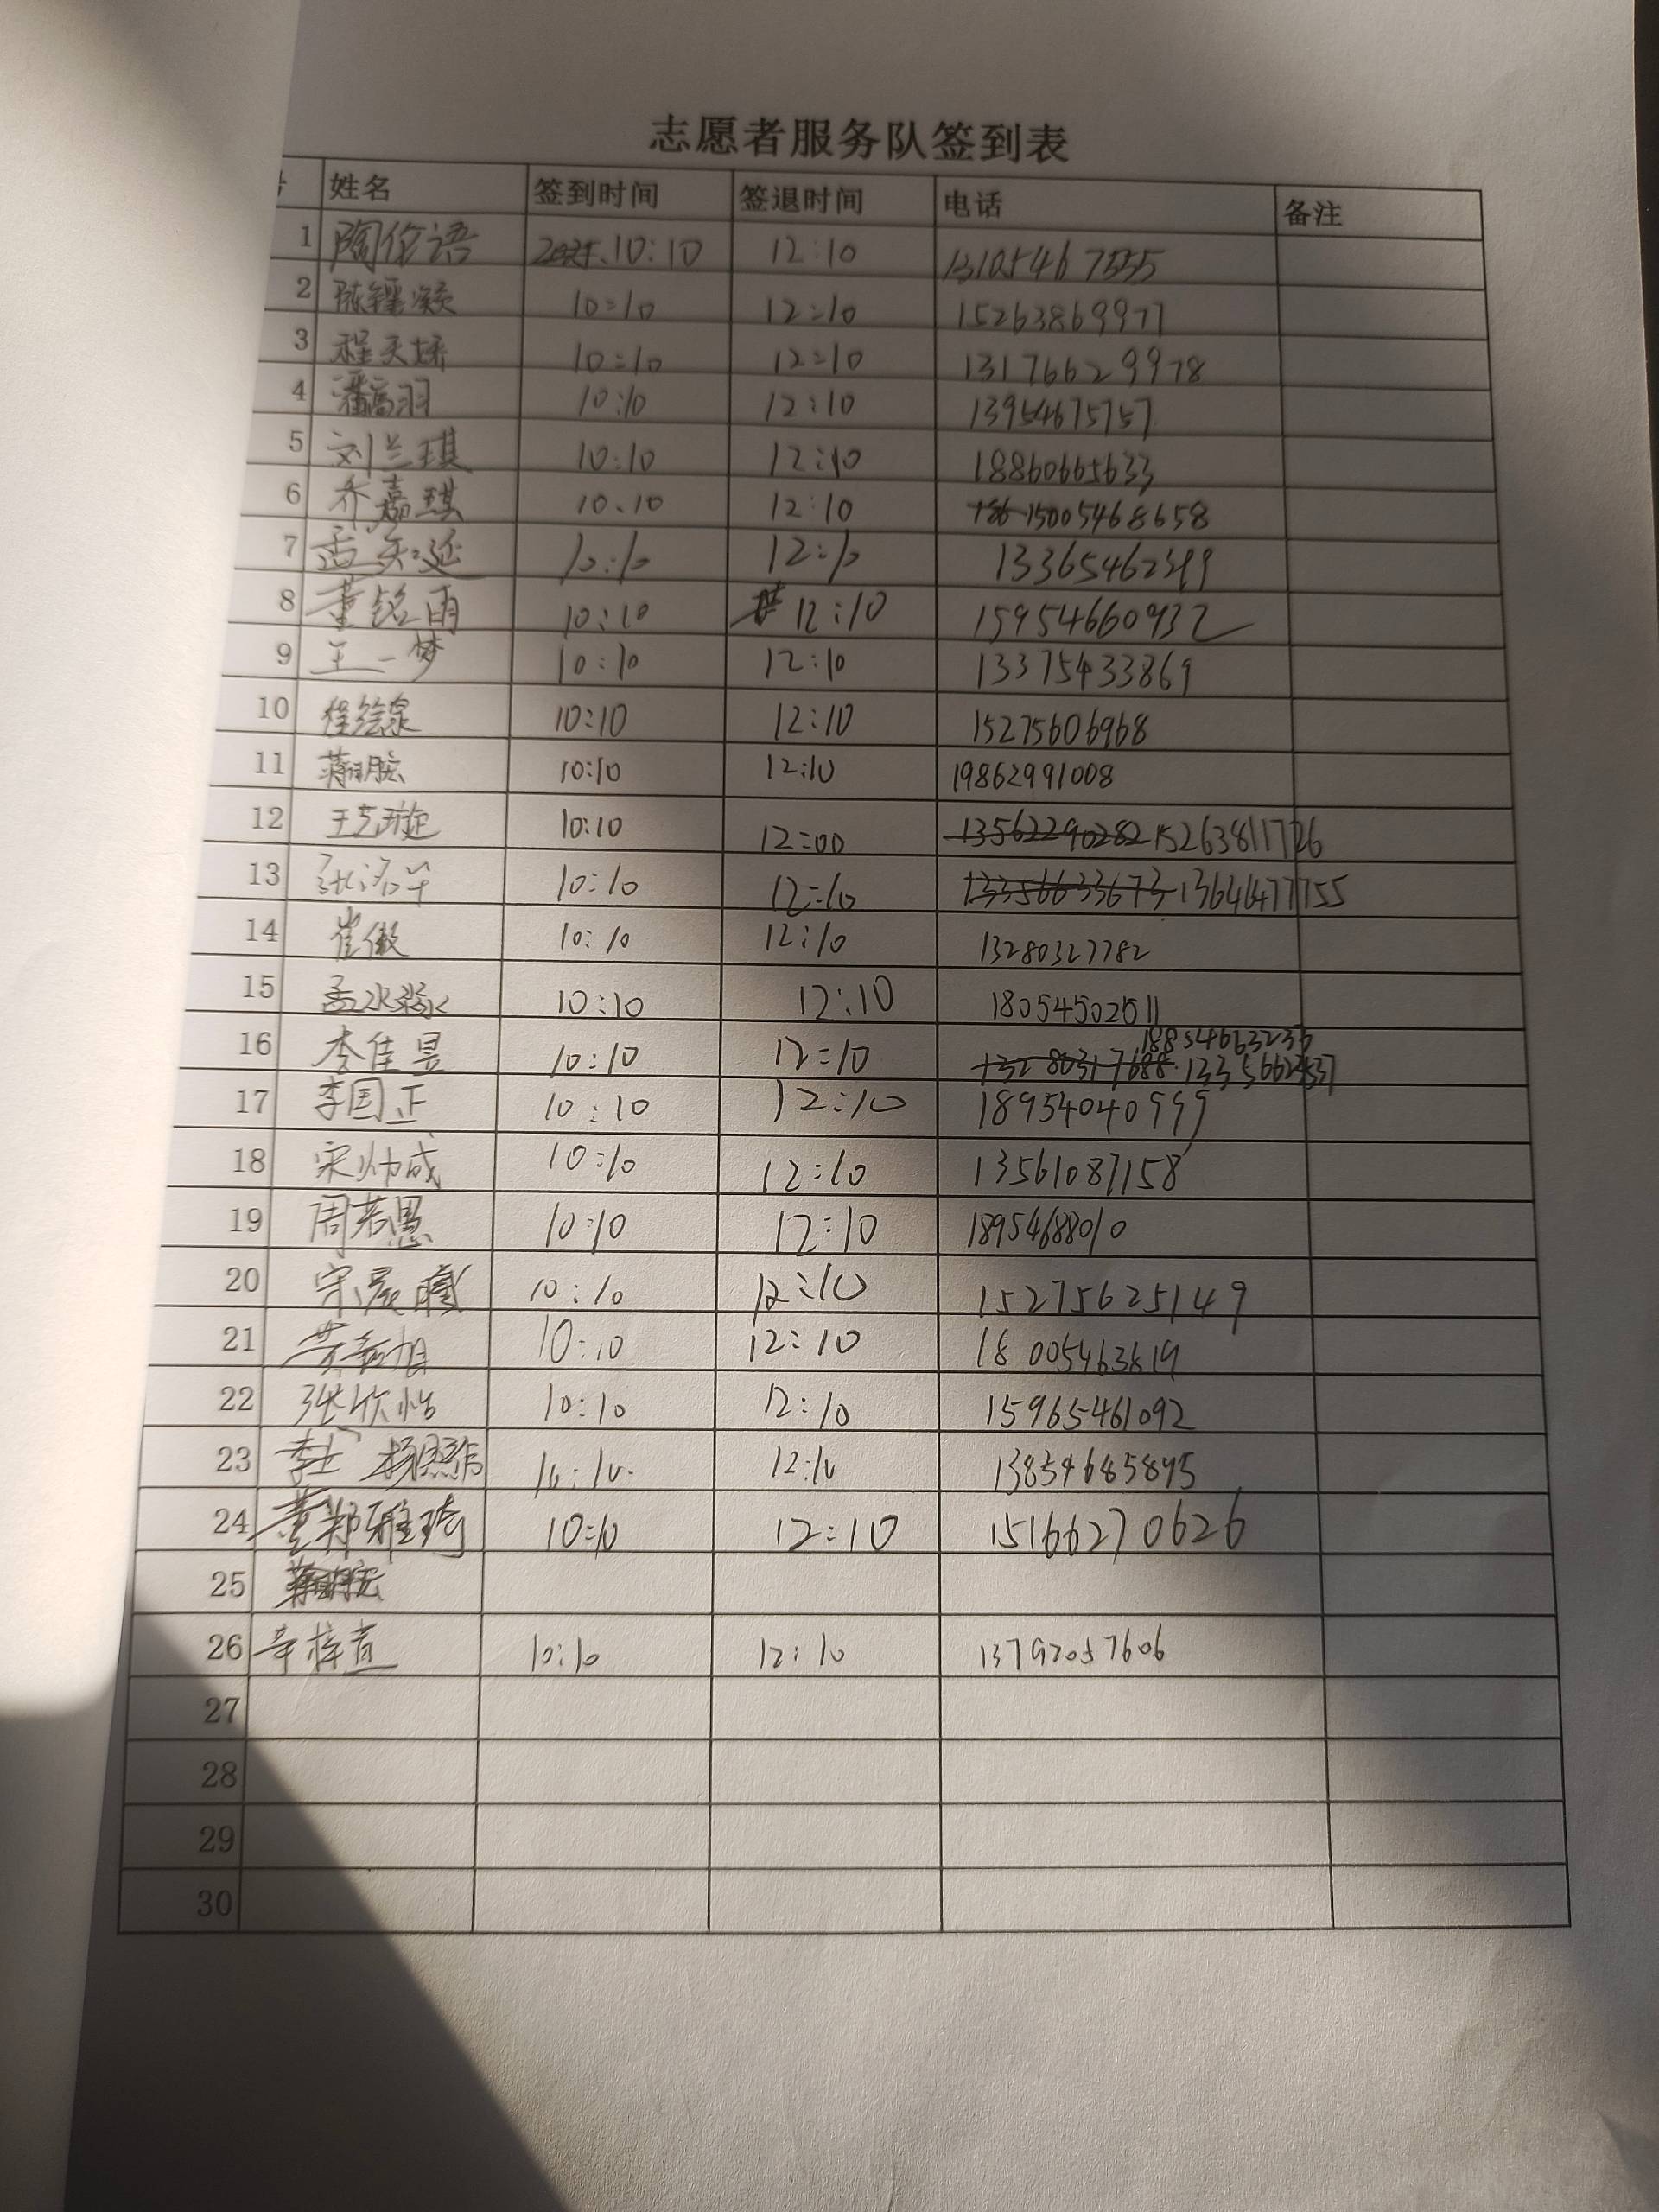 志愿者服务队签到表
姓名 签到时间 签退时间 电话 备注
1 陶伦语 10:10 12:10 13105467555
2 陈 凝 10:10 12:10 15263869977
3 程天娇 10:10 12:10 13176629978
4 潘高羽 10:10 12:10 13954675757
5 刘兰琪 10:10 12:10 18860665633
6 乔嘉琪 10.10 12:10 15005468658
7 孟 延 10:10 12:10 13365462399
8 董铭雨 10:10 12:10 15954660932
9 王一梦 10:10 12:10 13375433869
10 10:10 12:10 15275606968
11 蒋明宸 10:10 12:10 19862991008
12 王艺璇 10:10 12:00 13562290282 15263811726
13 张 10:10 12:10 13356633673 13646477755
14 崔傲 10:10 12:10 13280327782
15 孟 10:10 12:10 18054502511
18854663236
16 李佳昱 10:10 12:10 13280317688
17 李国正 10:10 12:10 18954040999
18 宋 成 10:10 12:10 13561087158
19 周若愚 10:10 12:10 18954688010
20 宋晨曦 10:10 12:10 15275625149
21 10:10 12:10 18005463819
22 张欣怡 10:10 12:10 15965461092
23 杨熙 10:10 12:10 13854685895
24 郑雅琦 10:10 12:10 15166270626
25
26 辛梓萱 10:10 12:10 13792057606
27
28
29
30